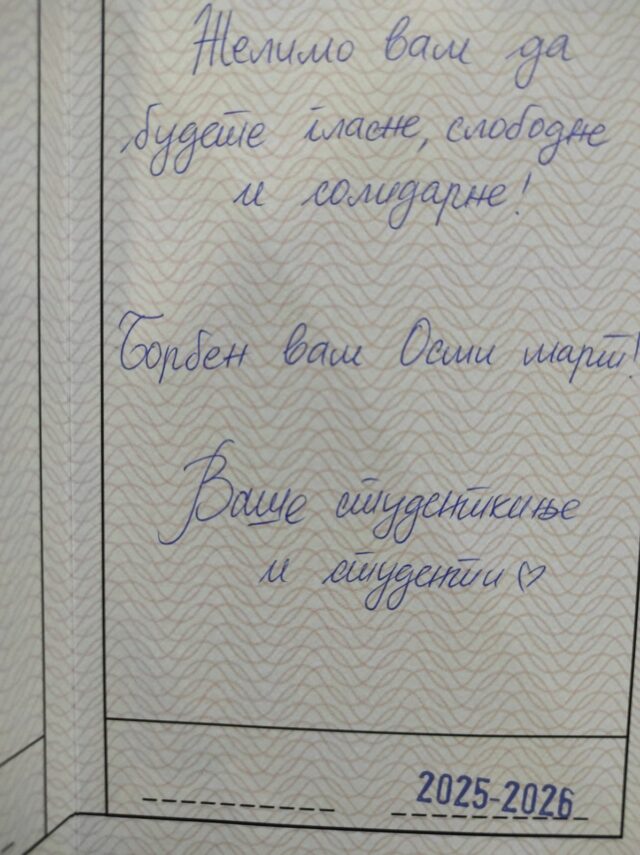 Желимо вам да
будете гласне, слободне
и солидарне!
Борбен вам Осми март!
Ваше студенткиње
и студенти♡
2025-2026